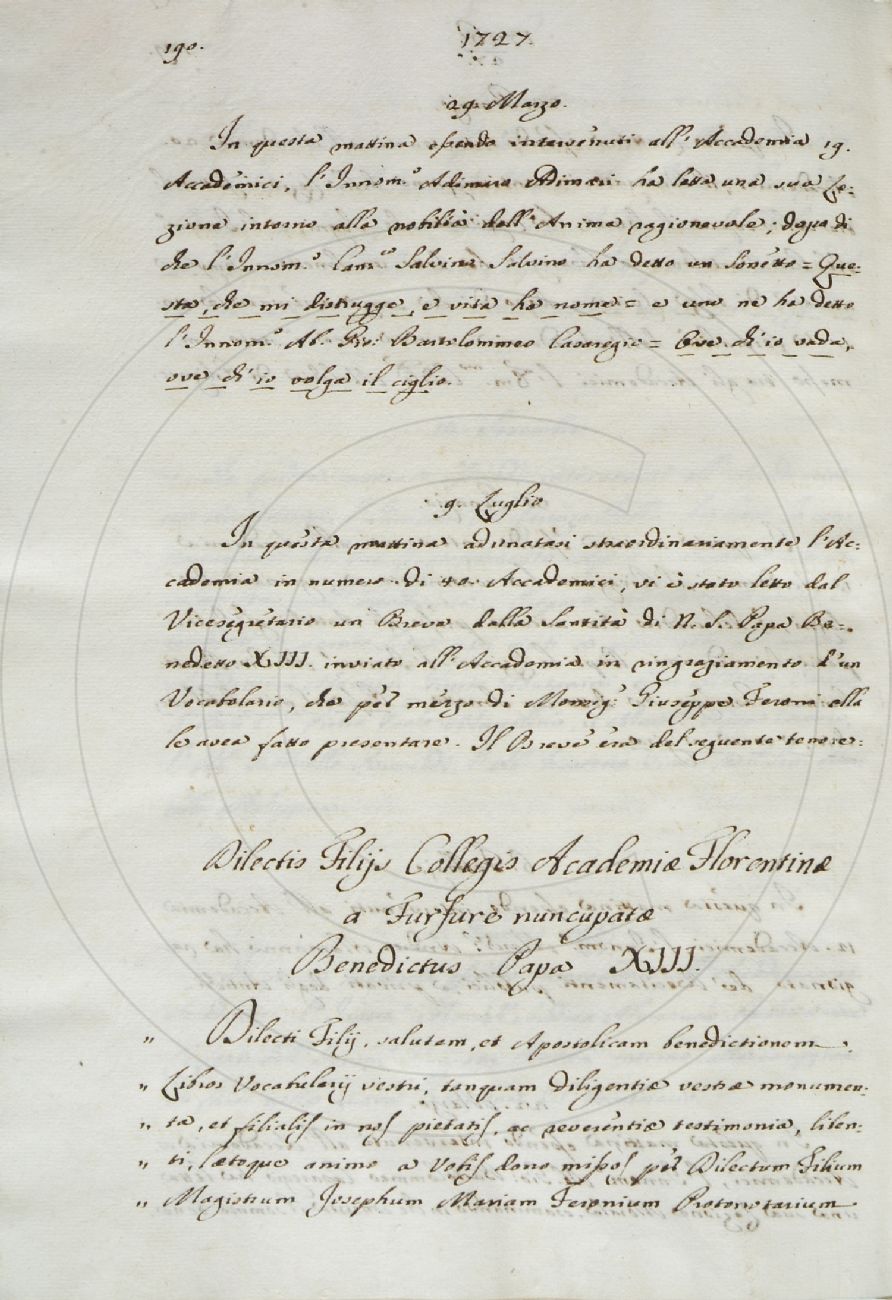 190.
1727.
29. Marzo.
In questa mattina essendo intervenuti all'Accademia 19.
Accademici, l'Innom.º Adimaro Adimari ha letta una sua Le:
zione intorno alla nobiltà dell'Anima ragionevole; dopo di
che l'Innom.º Can.co Salvino Salvini ha detto un Sonetto = Que:
sta, che mi distrugge, e vita ha nome = e uno ne ha detto
l'Innom.º Ab. Gio: Bartolommeo Casaregi = Ove ch'io vada,
ove ch'io volga il ciglio.
9. Luglio
In questa mattina adunatasi straordinariamente l'Ac:
cademia in numero di 40. Accademici, vi è stato letto dal
Vicesegretario un Breve della Santità di N. S. Papa Be:
nedetto XIII. inviato all'Accademia in ringraziamento d'un
Vocabolario, che per mezzo di Monsig.r Giuseppe Feroni ella
le avea fatto presentare. Il Breve era del seguente tenore:
Dilectis Filijs Collegis Academiæ Florentinæ
a Furfure nuncupatæ
Benedictus Papa XIII.
„ Dilecti Filij, salutem, et Apostolicam benedictionem.
„ Libros Vocabularij vestri, tanquam diligentiæ vestræ monumen:
„ ta, et filialis in nos pietatis, ac reverentiæ testimonia, liben:
„ ti, lætoque animo a Vobis dono missos per Dilectum Filium
„ Magistrum Josephum Mariam Feronium Protonotarium